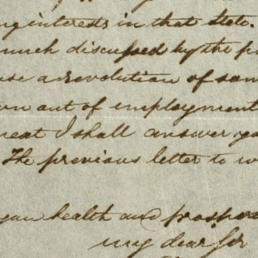 ing interests in that State.
much discussed by the p
use a revolution of som
wn out of employment
reat I shall answer yo
The previous letter to w
your health and prospe
my dear Sir